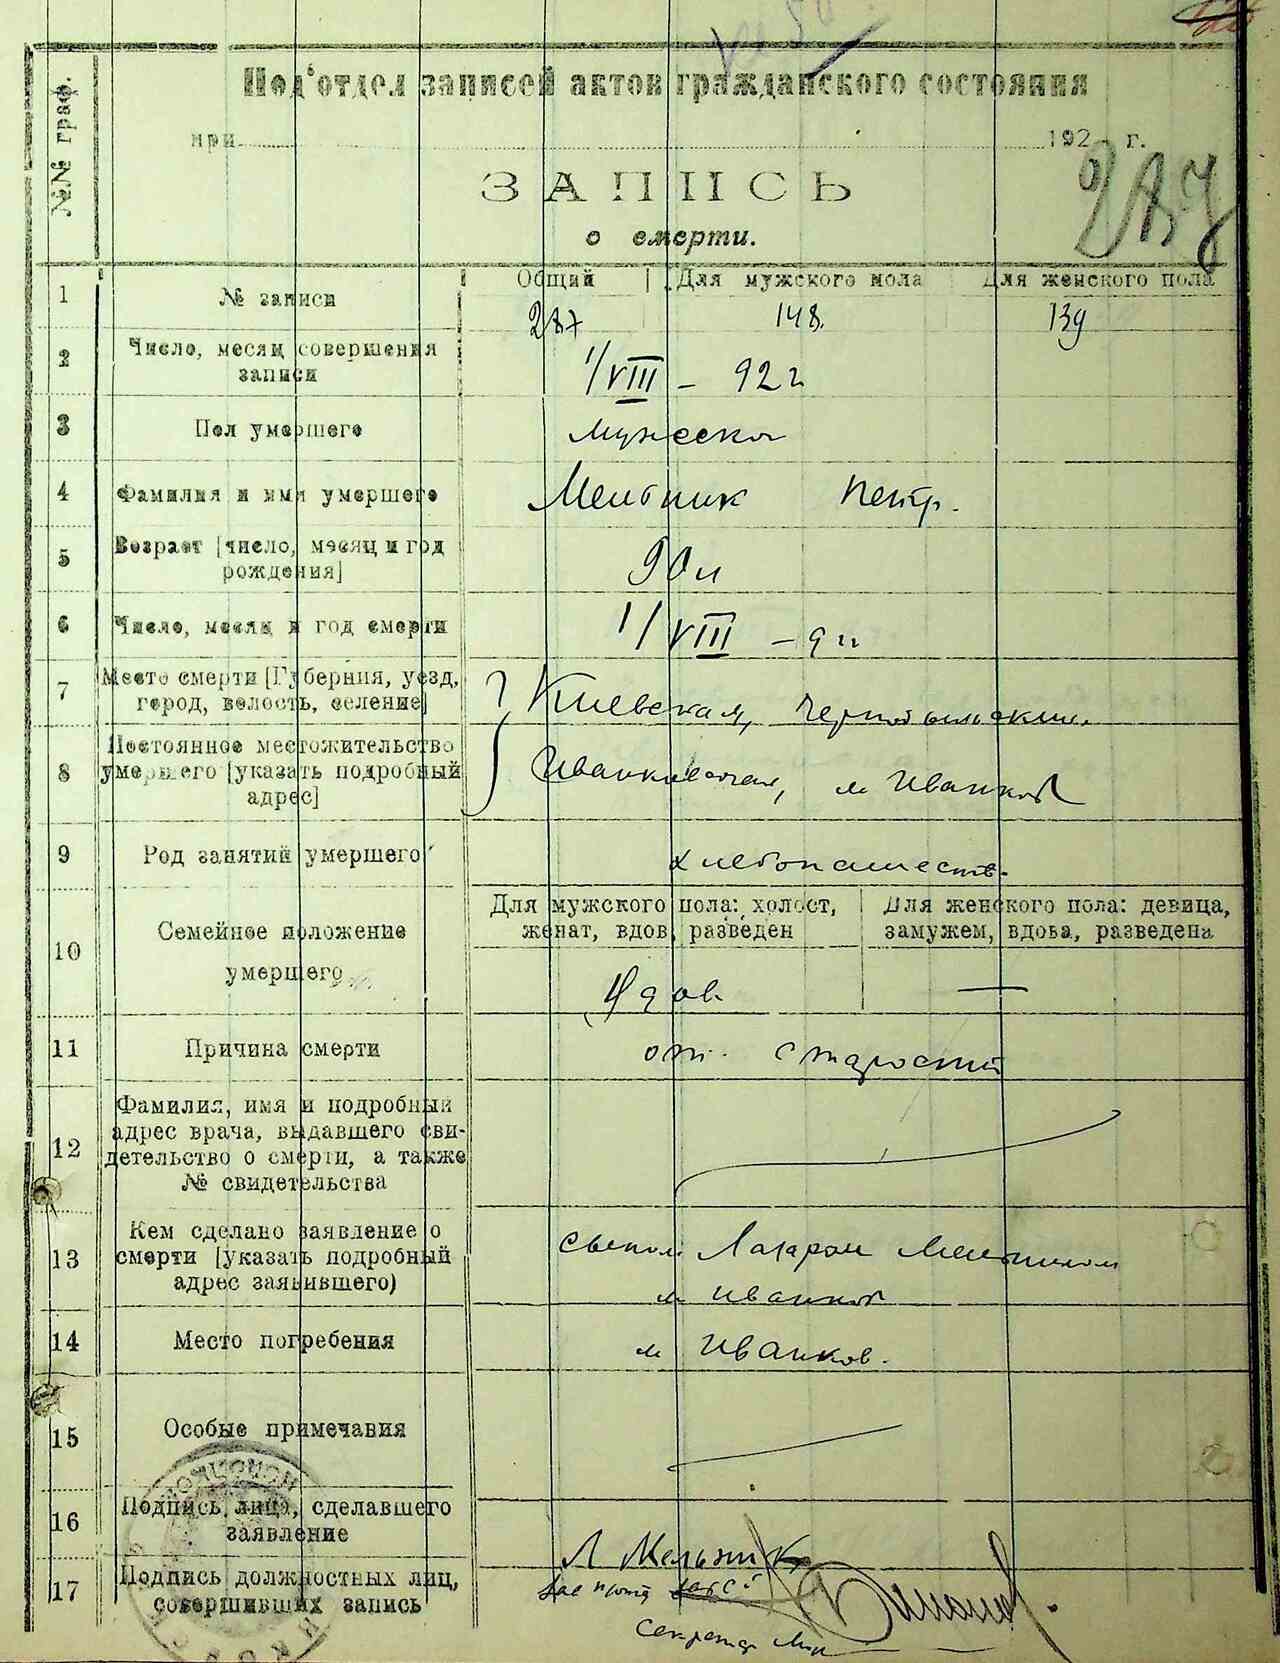 Под'отдел записей актов гражданского состояния
при 192 г.
№№ граф.
ЗАПИСЬ
о смерти.
287
1 № записи Общий Для мужского пола Для женского пола
287 148. 139
2 Число, месяц совершения
записи
1/VIII – 92 г
3 Пол умершего
4 Фамилия и имя умершего Мельник Петр.
5 Возраст [число, месяц и год
рождения]
90 л
6 Число, месяц и год смерти 1/VIII –
7 Место смерти [Губерния, уезд,
город, волость, селение]
Киевская, Чернобыльский.
8 Постоянное местожительство
умершего [указать подробный
адрес]
Иванковская, м Иванков
9 Род занятий умершего хлебопашеств.
10 Семейное положение
умершего
Для мужского пола: холост,
женат, вдов, разведен
Для женского пола: девица,
замужем, вдова, разведена
Вдов. —
11 Причина смерти от старости
12 Фамилия, имя и подробный
адрес врача, выдавшего сви-
детельство о смерти, а также
№ свидетельства
13 Кем сделано заявление о
смерти [указать подробный
адрес заявившего)
сыном Лазарем Мельником
м Иванков
14 Место погребения м Иванков.
15 Особые примечания
16 Подпись лица, сделавшего
заявление
Л Мельник
17 Подпись должностных лиц,
совершивших запись
Секретар